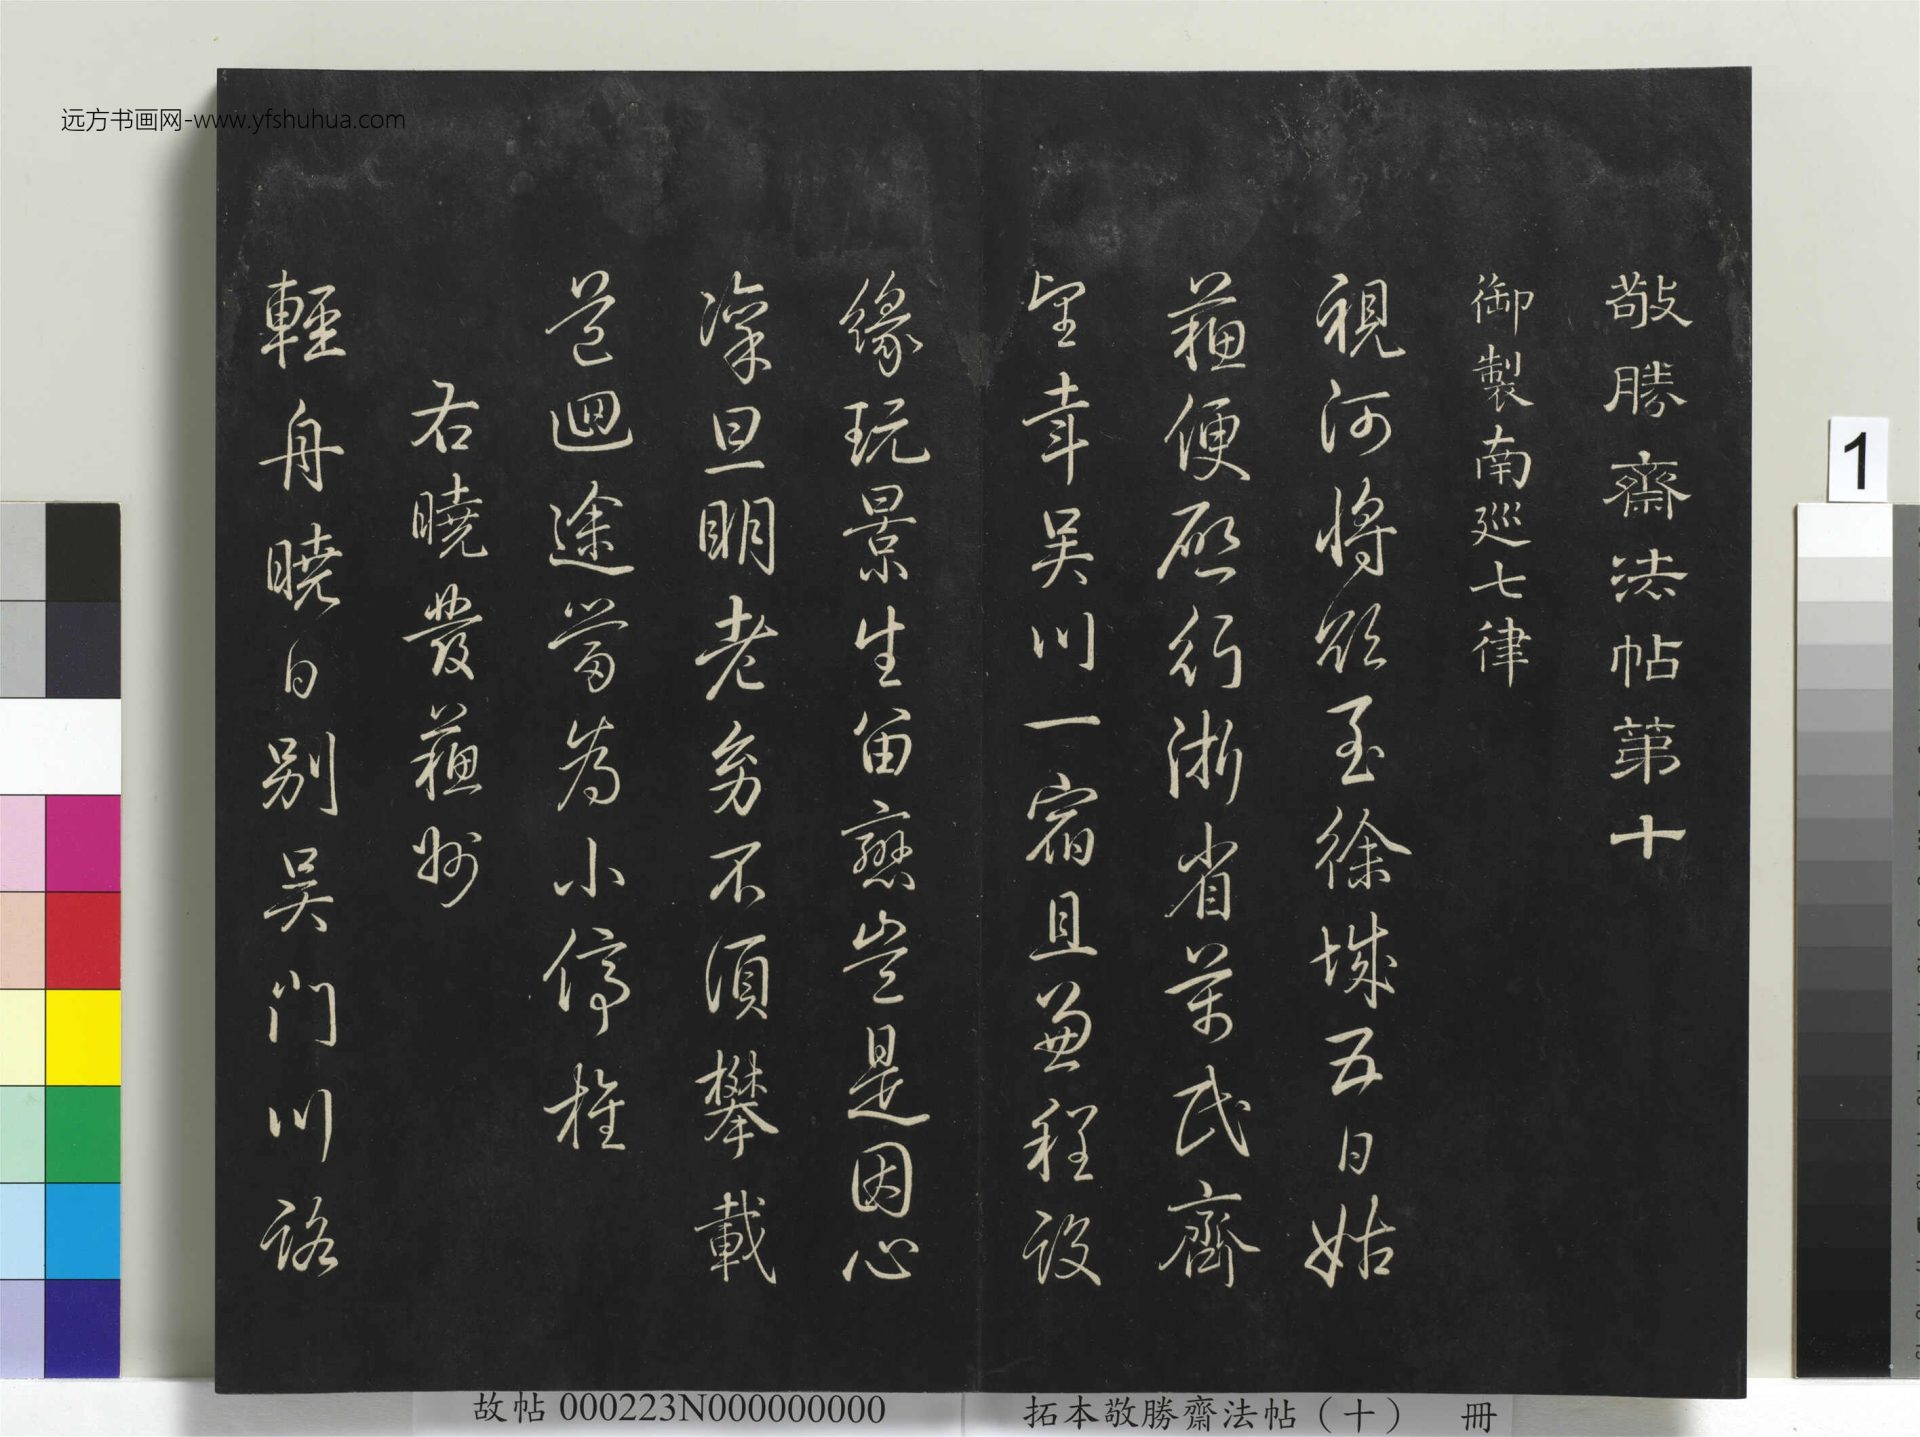 远方书画网-www.yfshuhua.com
敬勝齋法帖第十
御製南廵七律
視河將欲至徐城五日姑
蘓便啟行浙省萬民齊
望幸吳川一宿且兼程設
緣玩景生留戀豈是因心
凜旦明老幼不須攀載
道迴途當為小停旌
右曉發蘓州
輕舟曉日別吳門川路
1
故帖 000223N000000000
拓本敬勝齋法帖（十） 冊